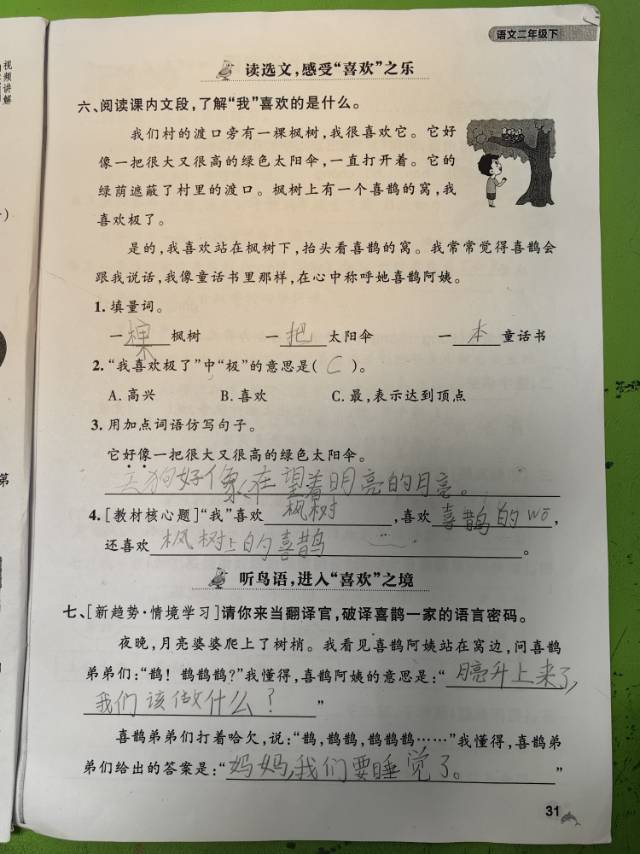 语文二年级下
读选文,感受“喜欢”之乐
六、阅读课内文段,了解“我”喜欢的是什么。
我们村的渡口旁有一棵枫树,我很喜欢它。它好
像一把很大又很高的绿色太阳伞,一直打开着。它的
绿荫遮蔽了村里的渡口。枫树上有一个喜鹊的窝,我
喜欢极了。
是的,我喜欢站在枫树下,抬头看喜鹊的窝。我常常觉得喜鹊会
跟我说话,我像童话书里那样,在心中称呼她喜鹊阿姨。
1. 填量词。
一棵枫树 一把太阳伞 一本童话书
2. “我喜欢极了”中“极”的意思是( C )。
A. 高兴 B. 喜欢 C. 最,表示达到顶点
3. 用加点词语仿写句子。
它好像一把很大又很高的绿色太阳伞。
狗好像在望着明亮的月亮。
4. [教材核心题]“我”喜欢枫树,喜欢喜鹊的wō,
还喜欢枫树上的喜鹊。
听鸟语,进入“喜欢”之境
七、[新趋势·情境学习]请你来当翻译官,破译喜鹊一家的语言密码。
夜晚,月亮婆婆爬上了树梢。我看见喜鹊阿姨站在窝边,问喜鹊
弟弟们:“鹊!鹊鹊鹊?”我懂得,喜鹊阿姨的意思是:“月亮升上来了,
我们该做什么?”
喜鹊弟弟们打着哈欠,说:“鹊,鹊鹊,鹊鹊鹊……”我懂得,喜鹊弟
弟们给出的答案是:“妈妈,我们要睡觉了。”
31
视
频
讲
解
第